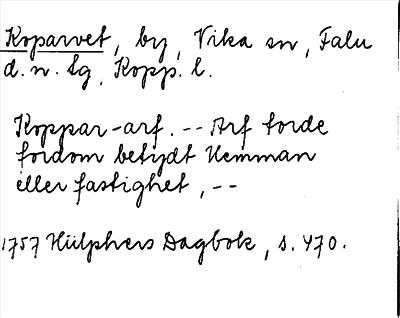 Koparvet, by, Vika sn, Falu
d. n. tg, Kopp. l.
Koppar-arf. -- Arf torde
fordom betydt Hemman
eller fastighet, --
1757 Hülphers Dagbok, s. 470.